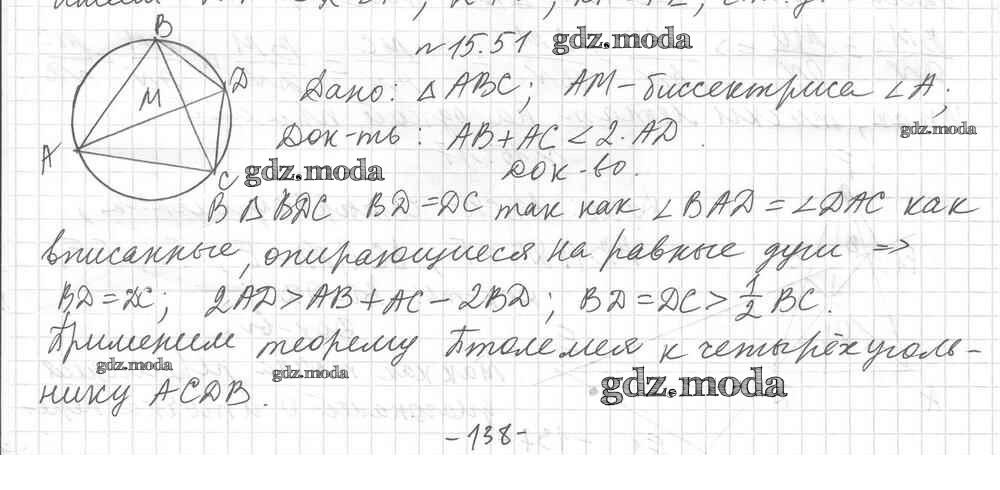 № 15.51 gdz.moda
B
D
M
A
C
Дано: △ABC; AM - биссектриса ∠A;
gdz.moda
Док-ть: AB + AC < 2·AD.
gdz.moda
Док-во.
В △BDC BD = DC так как ∠BAD = ∠DAC как
вписанные, опирающиеся на равные дуги =>
BD = DC; 2AD > AB + AC - 2BD; BD = DC > 1/2 BC.
Применим теорему Птолемея к четырёхуголь-
gdz.moda gdz.moda gdz.moda
нику ACDB.
- 138 -